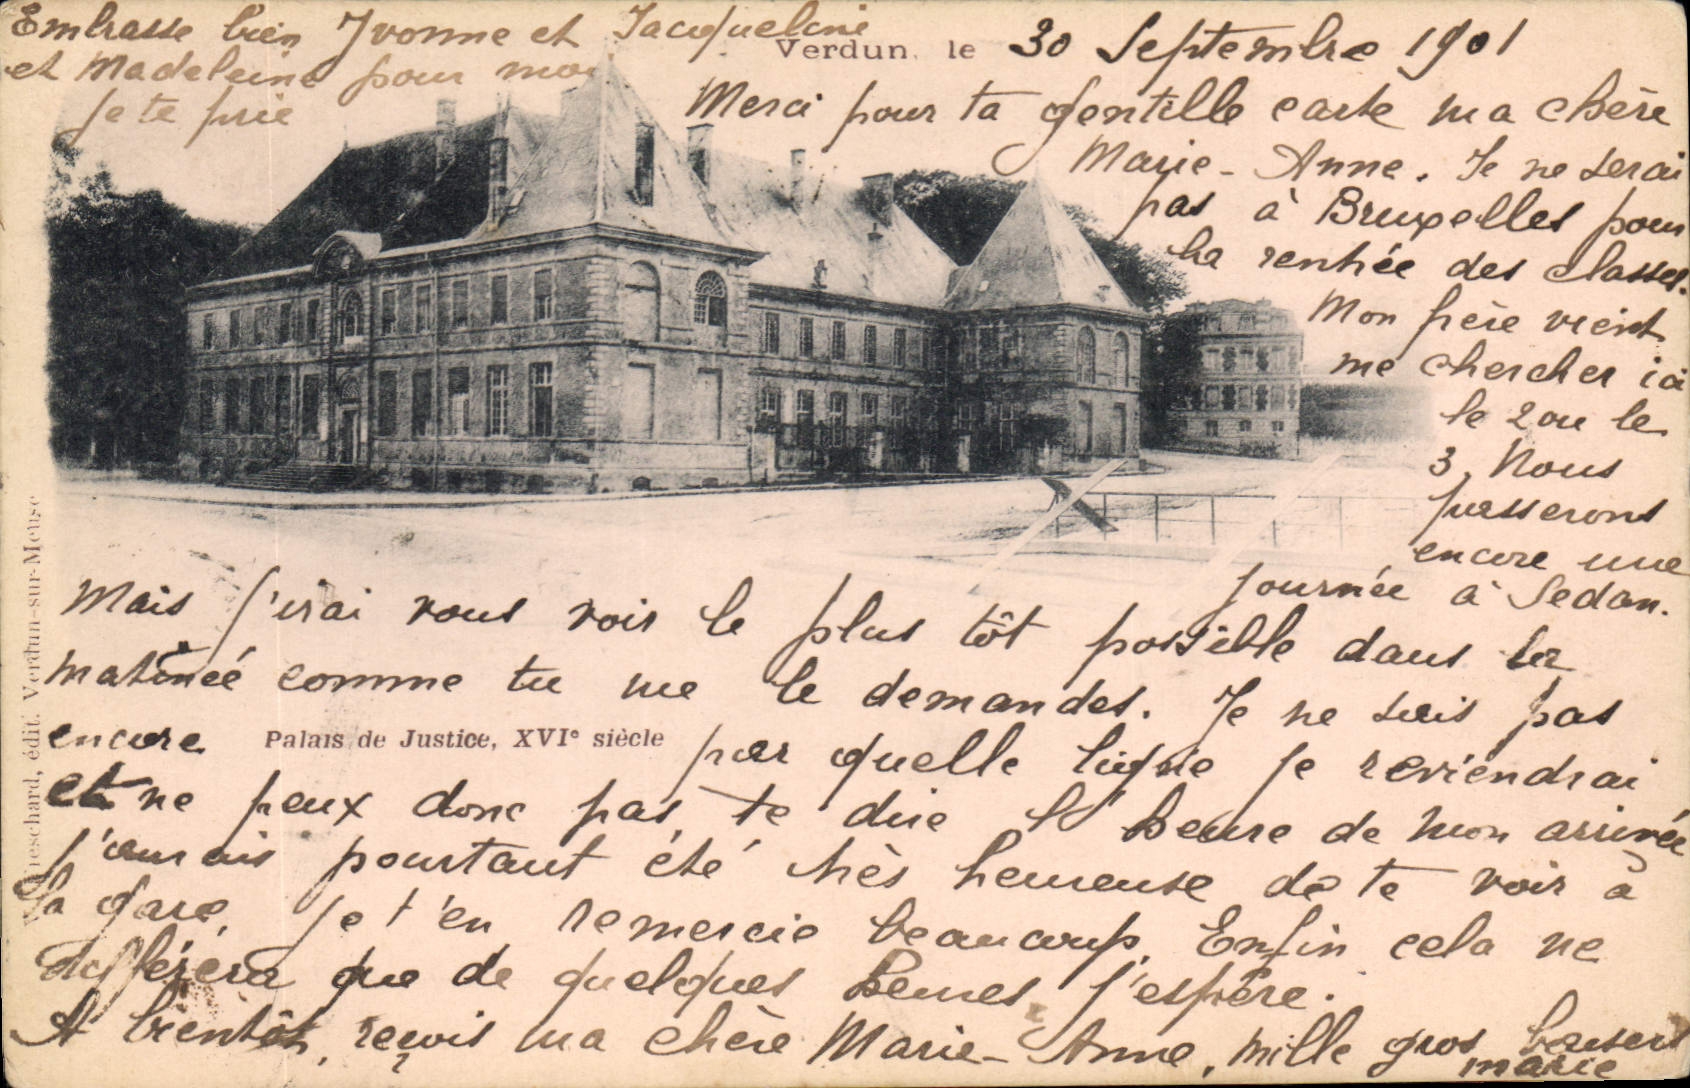 Verdun, le 30 Septembre 1901
Merci pour ta gentille carte ma chère
Marie-Anne. Je ne serai
pas à Bruxelles pour
la rentrée des classes.
Mon frère vient
me chercher ici
le 2 ou le
3. Nous
passerons
encore une
journée à Sedan.
Mais j'irai vous voir le plus tôt possible dans la
matinée comme tu me le demandes. Je ne sais pas
encore par quelle ligne je reviendrai
et ne peux donc pas te dire l'heure de mon arrivée
j'aurais pourtant été très heureuse de te voir à
la gare, je t'en remercie beaucoup. Enfin cela ne
différera que de quelques heures j'espère.
A bientôt, reçois ma chère Marie-Anne, mille gros baisers
Marie
Embrasse bien Yvonne et Jacqueline
et Madeleine pour moi
je te prie
Palais de Justice, XVIe siècle
édit. Verdun-sur-Meuse